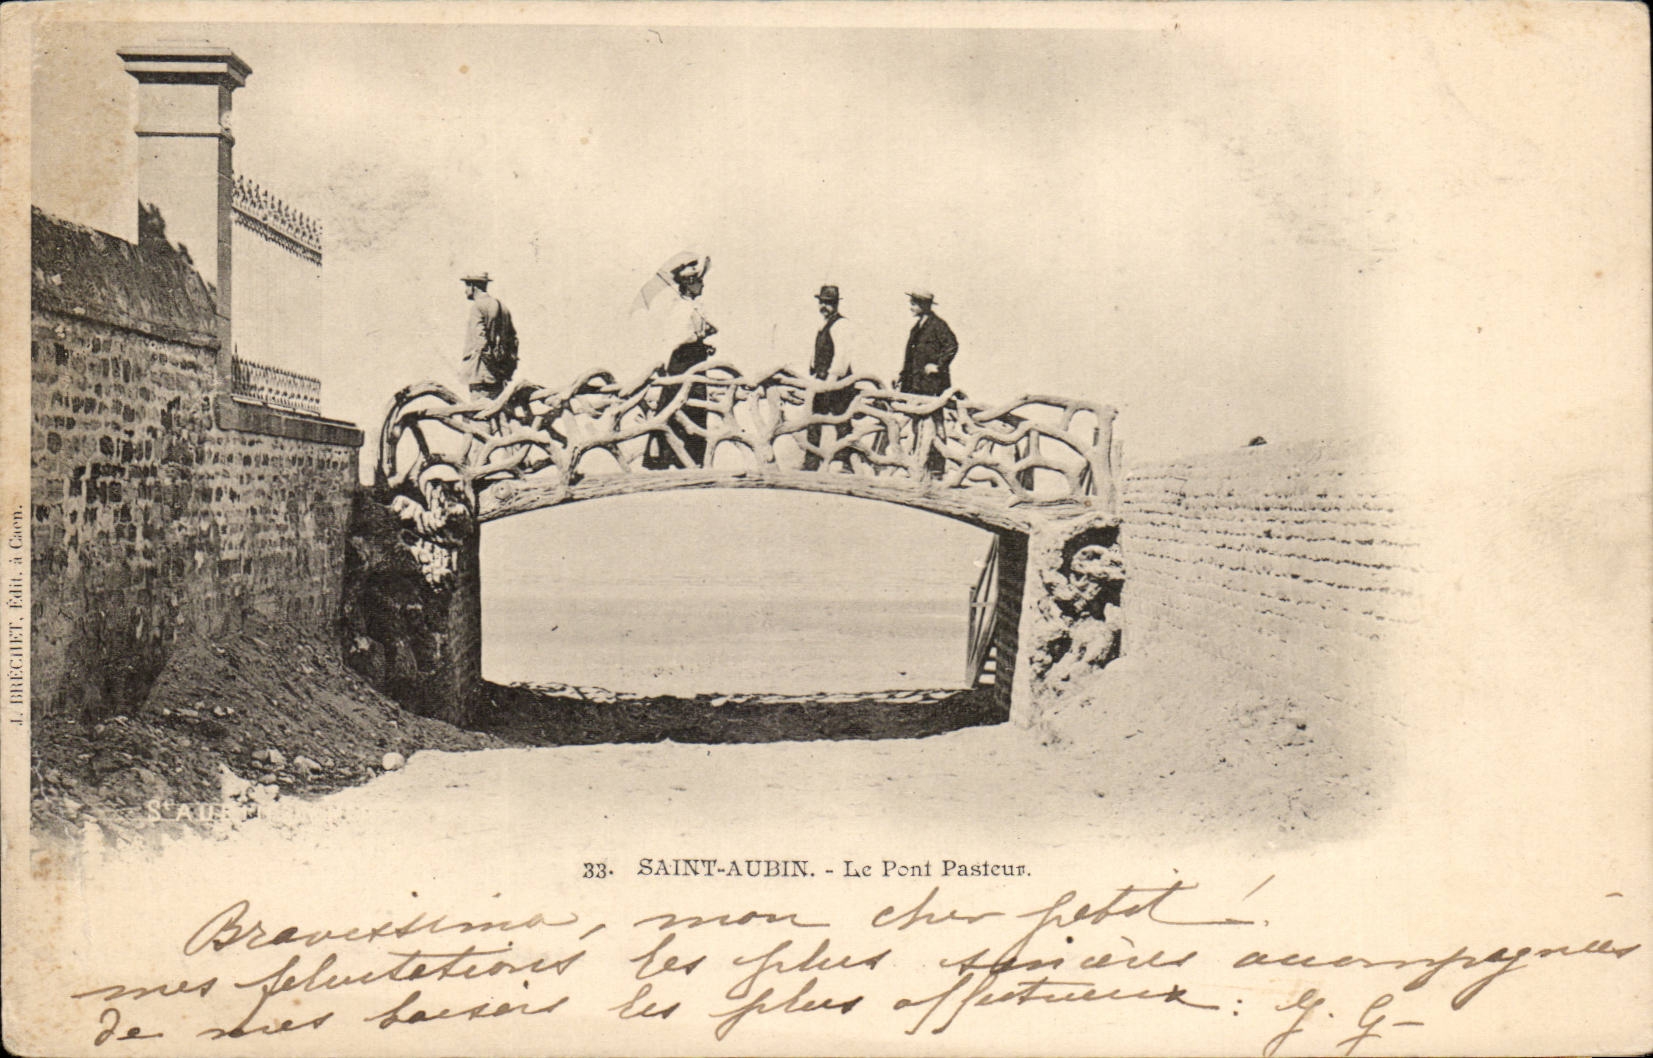 J. BRÉCHET, Édit. à Caen.
St AUBIN
33. SAINT-AUBIN. - Le Pont Pasteur.
Bravissimo, mon cher petit !
mes félicitations les plus sincères accompagnées
de mes baisers les plus affectueux : G. G-